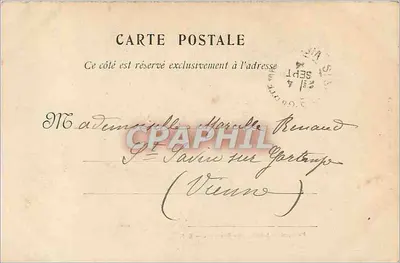 CARTE POSTALE
Ce côté est réservé exclusivement à l'adresse
4
SEPT
Mademoiselle Marcelle Renaud
CPAPHIL
St Savin sur Gartempe
(Vienne)